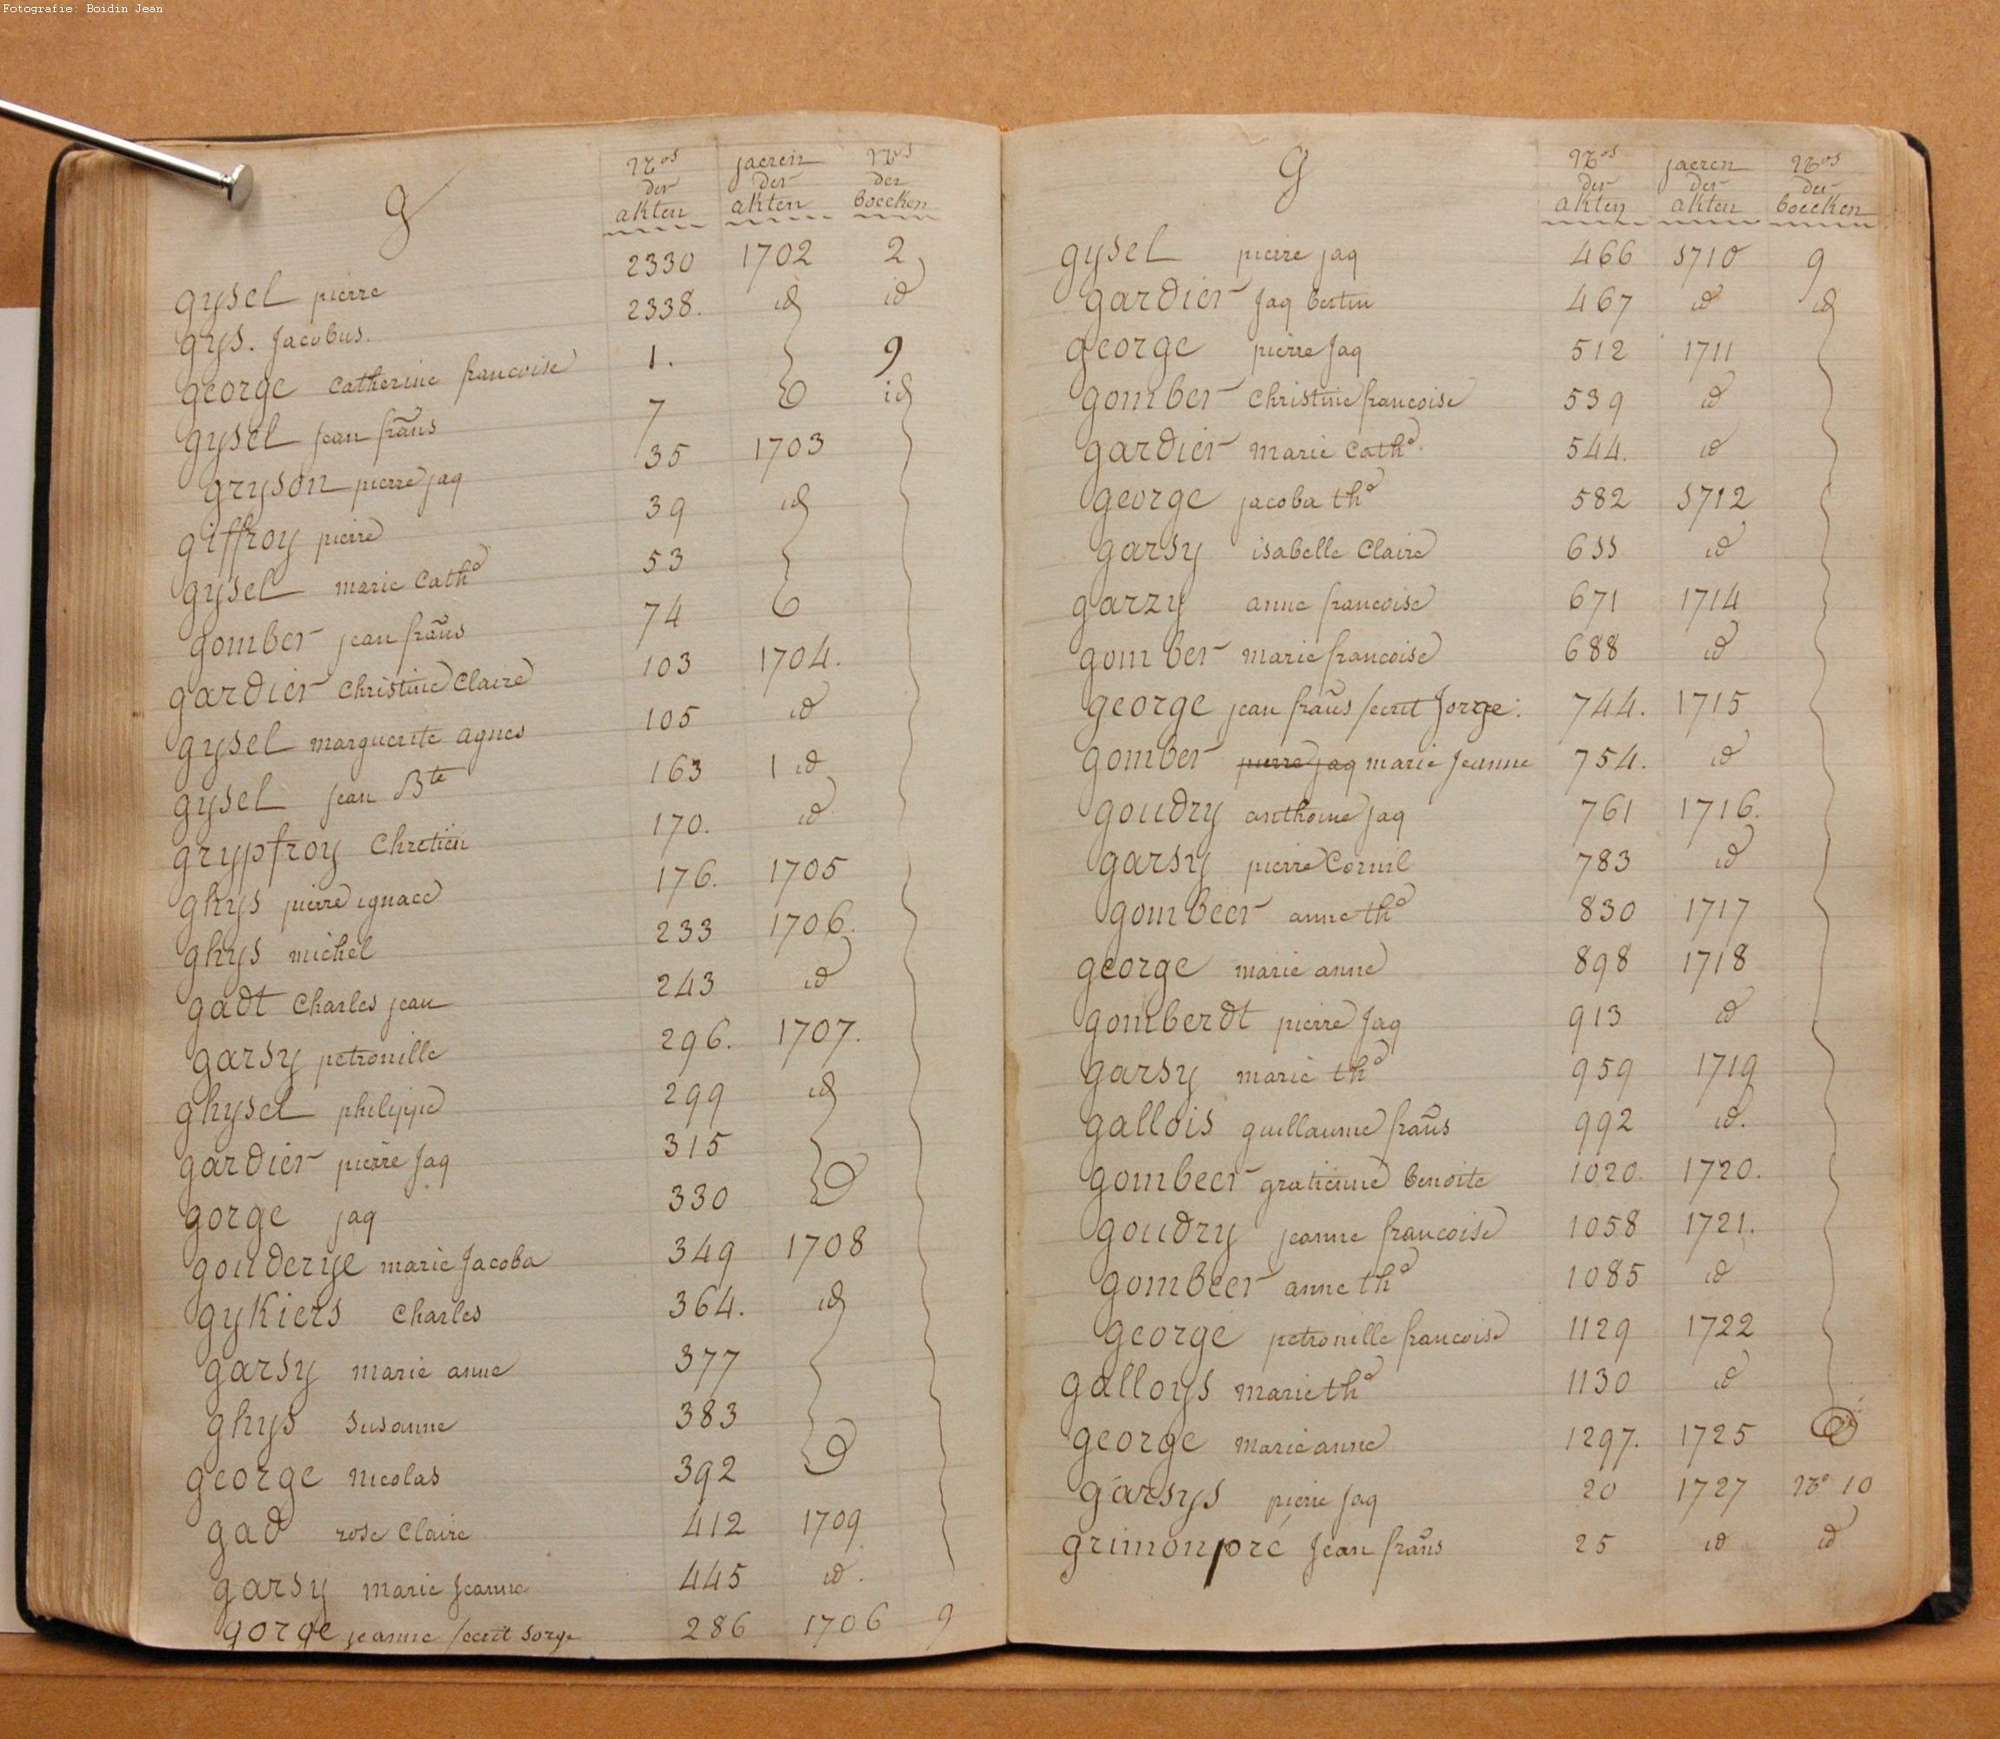 Fotografie: Boidin Jean
g
Nos der akten jaeren der akten Nos der boecken
gysel pierre 2330 1702 2
gys. Jacobus. 2338. id id
george Catherine francoise 1. 9
gysel Jean frans 7 id
gryson pierre jaq 35 1703
giffroy pierre 39 id
gysel marie Cathe 53
gomber jean frans 74
gardier Christine Claire 103 1704.
gysel marguerite agnes 105 id
gysel Jean Bte 163 1 id
grypfroy Chretien 170. id
ghys pierre ignace 176. 1705
ghys michel 233 1706.
gadt Charles jean 243 id
garsy petronille 296. 1707.
ghysel philippe 299 id
gardier pierre Jaq 315
gorge jaq 330
gouderye marie Jacoba 349 1708
gykiers Charles 364. id
garsy marie anne 377
ghys Susanne 383
george Nicolas 392
gad rose Claire 412 1709
garsy marie Jeanne 445 id.
gorge jeanne /ecrit Sorge 286 1706 9
g
Nos der akten jaeren der akten Nos der boecken
gysel pierre jaq 466 1710 9
gardier Jaq bertin 467 id id
george pierre Jaq 512 1711
gomber Christine francoise 539 id
gardier marie Cathe. 544. id
george jacoba the 582 1712
garsy isabelle Claire 655 id
garzy anne francoise 671 1714
gomber marie francoise 688 id
george jean frans /ecrit Jorge. 744. 1715
gomber pierre jaq marie Jeanne 754. id
goudry anthoine Jaq 761 1716.
garsy pierre Cornil 783 id
gombeer anne the 830 1717
george marie anne 898 1718
gomberdt pierre Jaq 913 id
garsy marie the 959 1719
gallois guillaume frans 992 id.
gombeer gratienne benoite 1020. 1720.
goudry jeanne francoise 1058 1721.
gombeer anne the 1085 id
george petronille francoise 1129 1722
galloys marie the 1130 id
george marie anne 1297. 1725
garsys pierre Jaq 20 1727 No 10
grimonpré Jean frans 25 id id